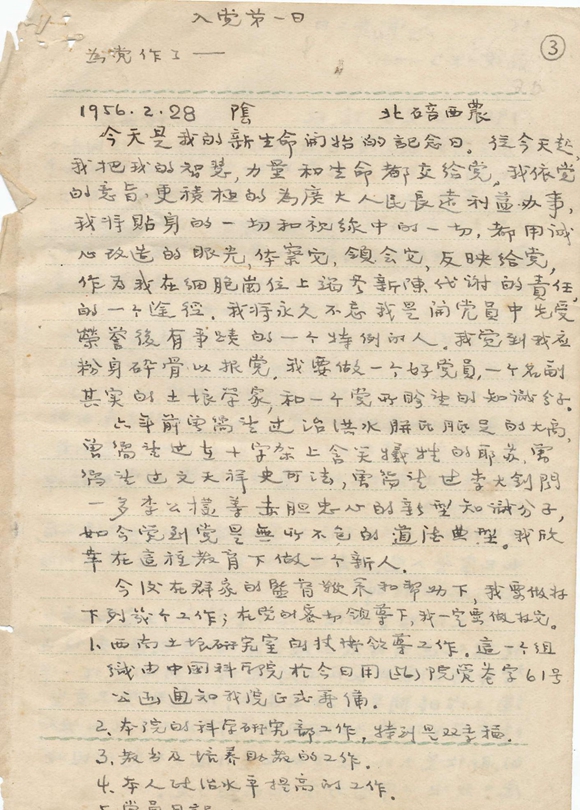 入党第一日
③
為党作了——
1956.2.28 陰 北碚西農
今天是我的新生命開始的記念日。從今天起,
我把我的智慧,力量和生命都交給党,我依党
的意旨,更積極的為廣大人民長遠利益办事,
我将貼身的一切和視線中的一切,都用誠
心改造的眼光,体察它,領会它,反映給党,
作为我在細胞崗位上 新陳代谢的責任
的一个途徑。我将永久不忘我是開党員中先受
榮誉後有事蹟的一个特例的人。我觉到我应
粉身碎骨以报党。我要做一个好党員,一个名副
其实的土壤学家,和一个党所 的知識分子。
六年前曾倣法过治洪水胼胝胝足的大禹,
曾倣法过在十字架上含笑犧牲的耶苏,曾
倣法过文天祥史可法,曾倣法过李大釗聞
一多李公樸等赤胆忠心的新型知識分子,
如今觉到党是無所不包的道法典型。我欣
幸在這种教育下做一个新人。
今後在群众的監督 和帮助下,我要做好
下列几个工作;在党的密切領導下,我一定要做好它。
1.西南土壤研究室的技術領導工作。這一个组
織由中国科学院於今日用(56)院 字61号
公函通知我院正式筹備。
2.本院的科学研究部工作,特別是双季稻。
3.教书及培养助教的工作。
4.本人政治水平提高的工作。
5.党員日記